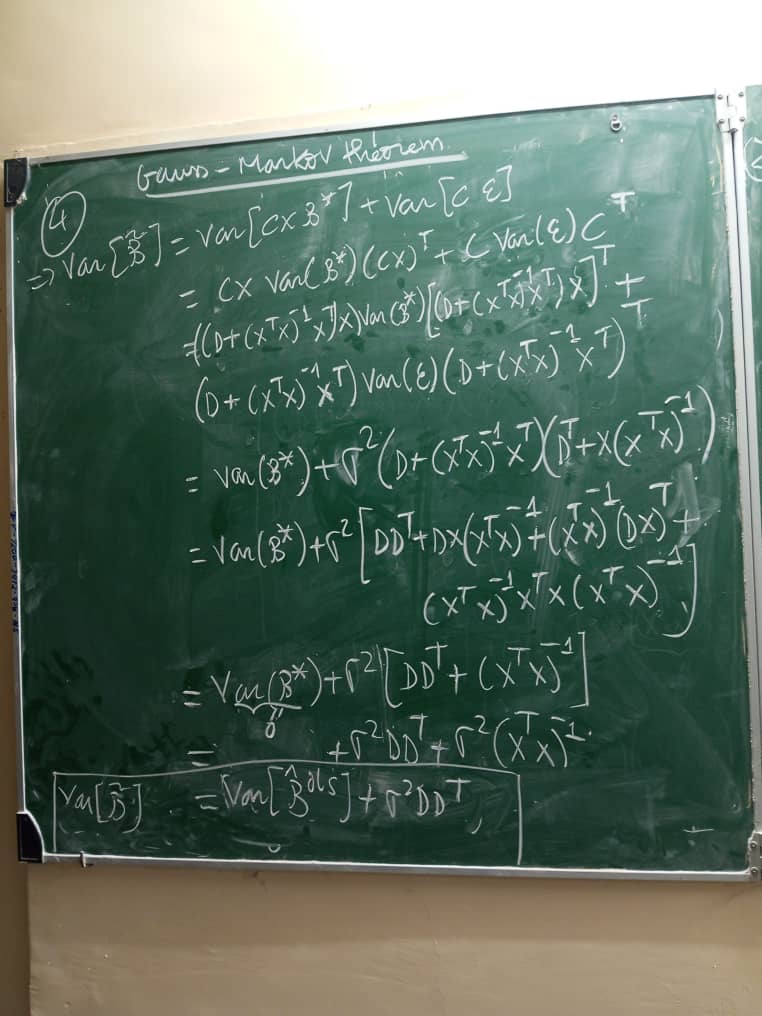 Gauss - Markov theorem
④
⇒ Var[B̃] = Var[CXB*] + Var[C ε]
= CX Var(B*)(CX)ᵀ + C Var(ε) Cᵀ
= ((D+(XᵀX)⁻¹Xᵀ)X) Var(B*) [(D+(XᵀX)⁻¹Xᵀ)X]ᵀ +
(D+(XᵀX)⁻¹Xᵀ) Var(ε) (D+(XᵀX)⁻¹Xᵀ)ᵀ
= Var(B*) + σ²(D+(XᵀX)⁻¹Xᵀ)(Dᵀ+X(XᵀX)⁻¹)
= Var(B*) + σ²[DDᵀ+DX(XᵀX)⁻¹+(XᵀX)⁻¹(DX)ᵀ+
(XᵀX)⁻¹XᵀX(XᵀX)⁻¹]
= Var(B*) + σ²[DDᵀ + (XᵀX)⁻¹]
0
= + σ²DDᵀ + σ²(XᵀX)⁻¹
Var[B̃] = Var[B̂ᵒˡˢ] + σ²DDᵀ